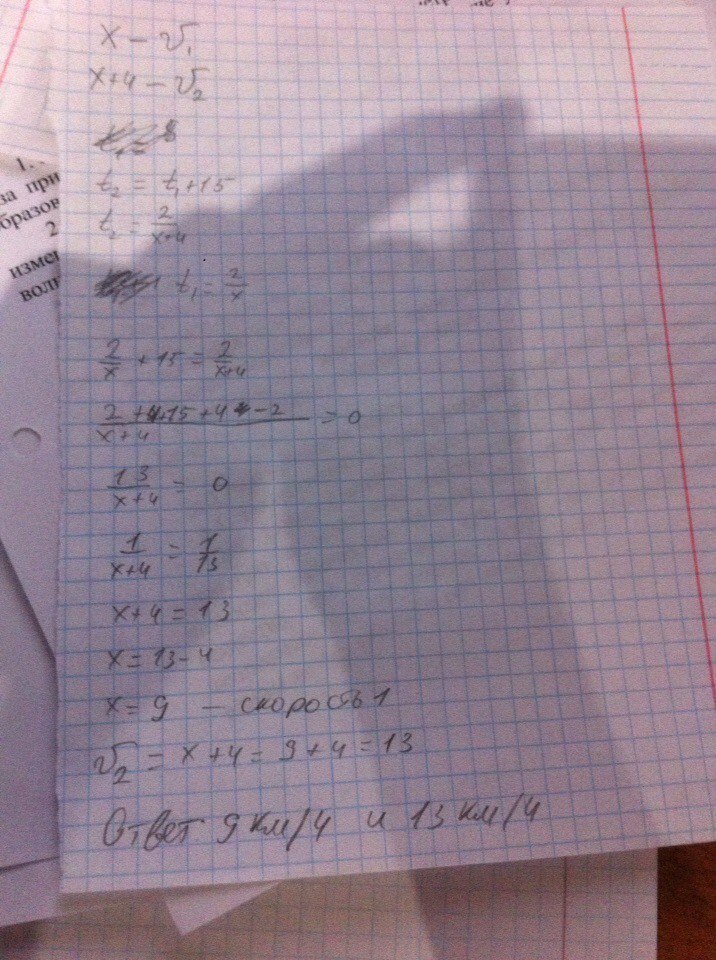 x – v₁
x+4 – v₂
t₂ = t₁+15
t₂ = 2/(x+4)
t₁ = 2/x
2/x + 15 = 2/(x+4)
(2+4·15+4-2)/(x+4) = 0
13/(x+4) = 0
1/(x+4) = 1/13
x+4 = 13
x = 13-4
x = 9 – скорость 1
v₂ = x+4 = 9+4 = 13
Ответ 9 км/ч и 13 км/ч
1.
за при
бразов
2
измен